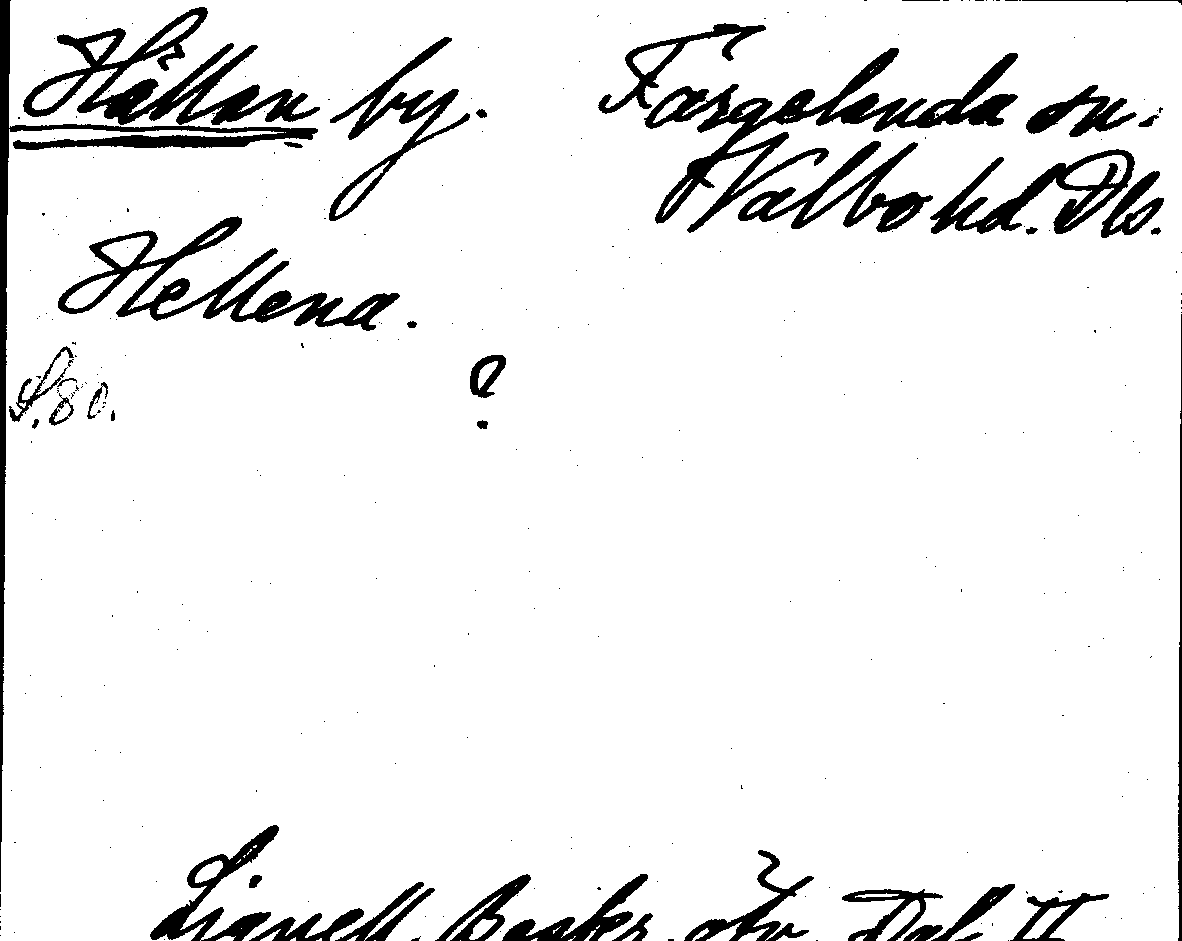 Hällan by. Färgelanda sn.
Valbo hd. Dls.
Hellena.
S. 80. ?
Lignell, Beskr. öfv. Dal II